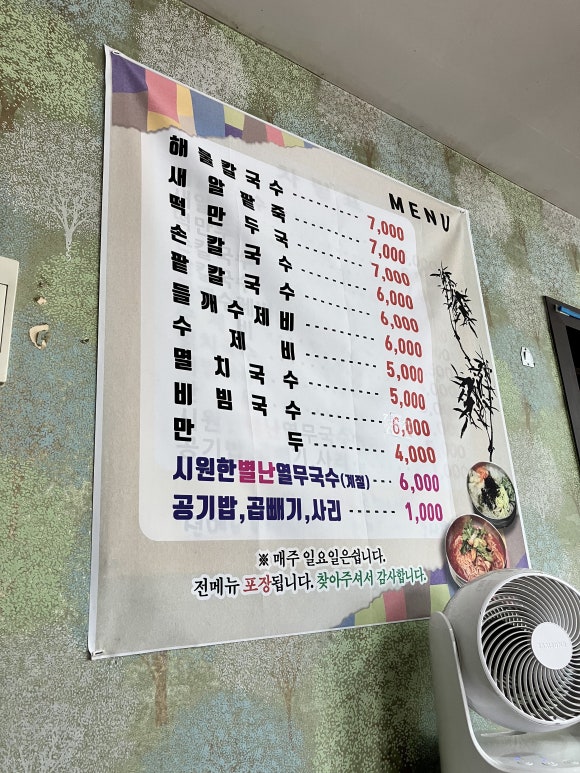 MENU
해물칼국수 ········ 7,000
새알팥죽 ········ 7,000
떡만두국 ········ 7,000
손칼국수 ········ 6,000
팥칼국수 ········ 6,000
들깨수제비 ········ 6,000
수제비 ········ 5,000
멸치국수 ········ 5,000
비빔국수 ········ 6,000
만두 ········ 4,000
시원한별난열무국수(계절) ··· 6,000
공기밥,곱빼기,사리 ······ 1,000
※ 매주 일요일은쉽니다.
전메뉴 포장됩니다. 찾아주셔서 감사합니다.